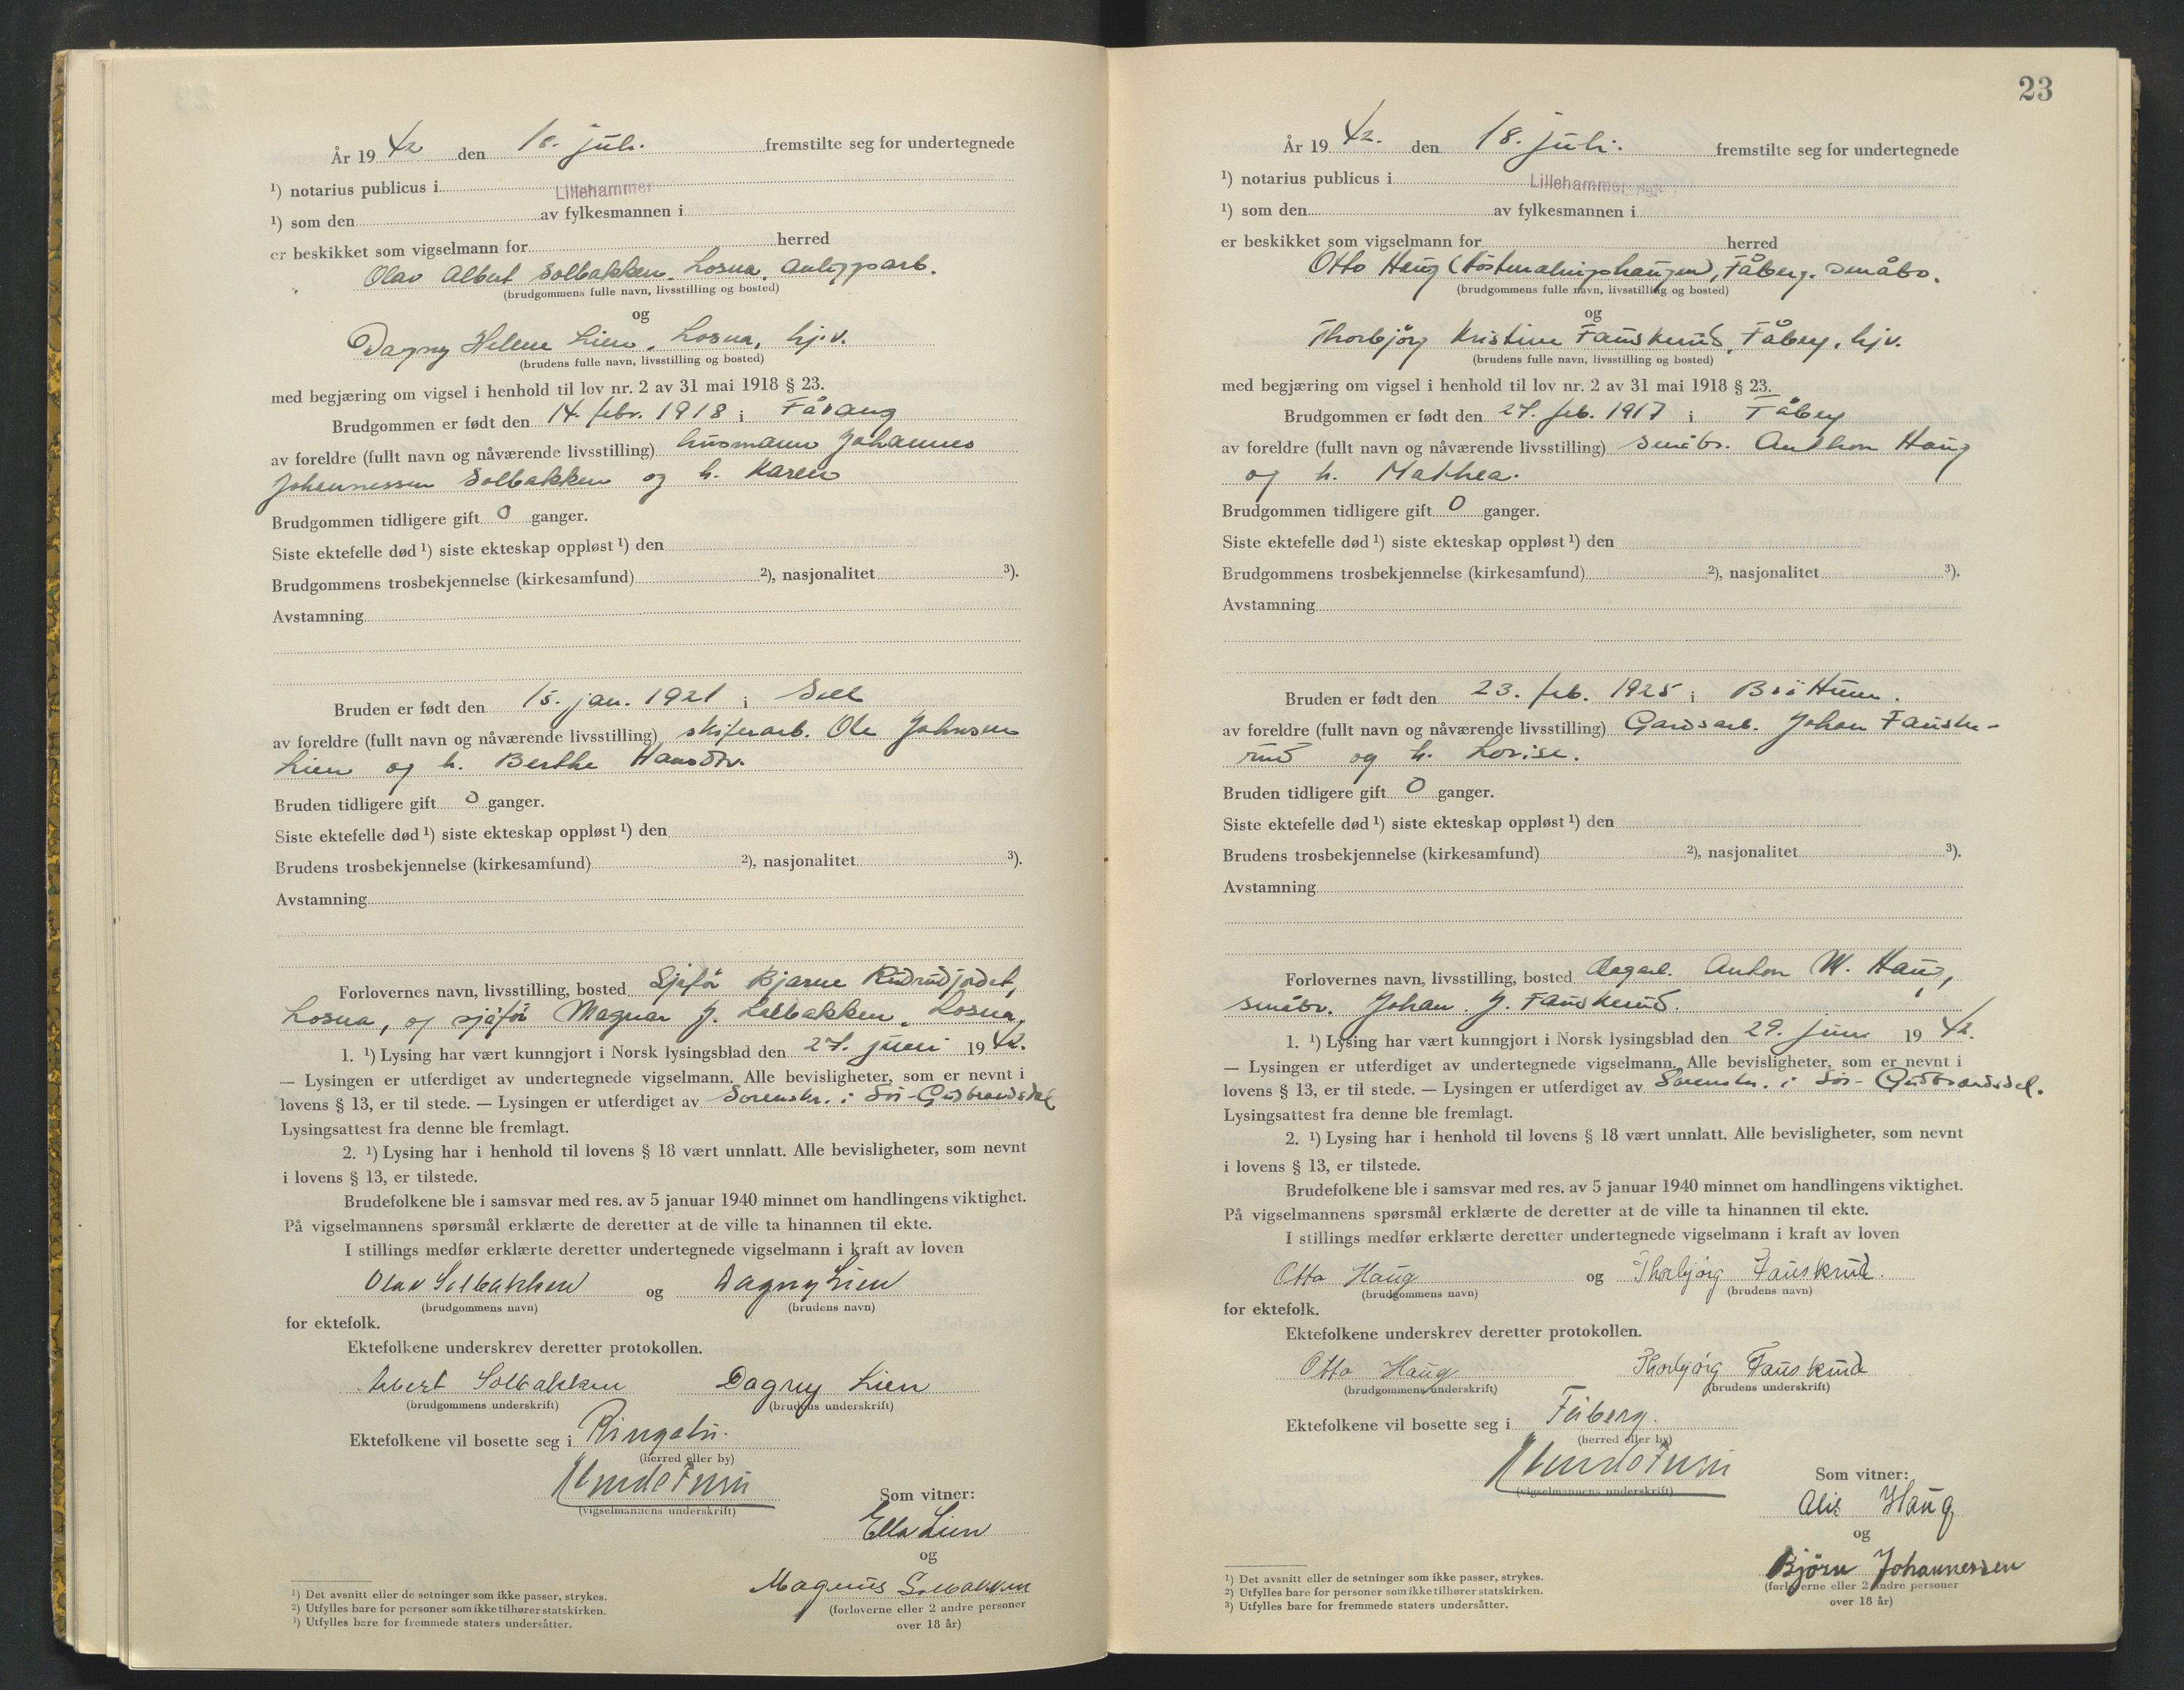 År 19 42 den 18. juli. fremstilte seg for undertegnede
¹) notarius publicus i Lillehammer
¹) som den av fylkesmannen i
er beskikket som vigselmann for herred
Olav Albert Solbakken, Losna, Anleggsarb.
(brudgommens fulle navn, livsstilling og bosted)
og
Dagny Helene Lien, Losna, hj.v.
(brudens fulle navn, livsstilling og bosted)
med begjæring om vigsel i henhold til lov nr. 2 av 31 mai 1918 § 23.
Brudgommen er født den 14. febr. 1918 i Fåvang
av foreldre (fullt navn og nåværende livsstilling) husmann Johannes
Johannessen Solbakken og h. Karen
Brudgommen tidligere gift 0 ganger.
Siste ektefelle død ¹) siste ekteskap oppløst ¹) den
Brudgommens trosbekjennelse (kirkesamfund) ²), nasjonalitet ³).
Avstamning
Bruden er født den 15. jan. 1921 i Sell
av foreldre (fullt navn og nåværende livsstilling) skiferarb. Ole Johnsen
Lien og h. Berthe Hansdtr.
Bruden tidligere gift 0 ganger.
Siste ektefelle død ¹) siste ekteskap oppløst ¹) den
Brudens trosbekjennelse (kirkesamfund) ²), nasjonalitet ³).
Avstamning
Forlovernes navn, livsstilling, bosted Sjåfør Bjarne Rudrudjordet,
Losna, og sjåfør Magnar J. Solbakken, Losna.
1. ¹) Lysing har vært kunngjort i Norsk lysingsblad den 27. juni 19 42.
— Lysingen er utferdiget av undertegnede vigselmann. Alle bevisligheter, som er nevnt i
lovens § 13, er til stede. — Lysingen er utferdiget av Sorenskr. i Sör-Gudbrandsdal
Lysingsattest fra denne ble fremlagt.
2. ¹) Lysing har i henhold til lovens § 18 vært unnlatt. Alle bevisligheter, som nevnt
i lovens § 13, er tilstede.
Brudefolkene ble i samsvar med res. av 5 januar 1940 minnet om handlingens viktighet.
På vigselmannens spørsmål erklærte de deretter at de ville ta hinannen til ekte.
I stillings medfør erklærte deretter undertegnede vigselmann i kraft av loven
Olav Solbakken og Dagny Lien
(brudgommens navn) (brudens navn)
for ektefolk.
Ektefolkene underskrev deretter protokollen.
Albert Solbakken Dagny Lien
(brudgommens underskrift) (brudens underskrift)
Ektefolkene vil bosette seg i Ringebu.
(herred eller by)
(vigselmannens underskrift)
Som vitner:
Ella Lien
og
Magnus Solbakken
(forloverne eller 2 andre personer
over 18 år)
¹) Det avsnitt eller de setninger som ikke passer, strykes.
²) Utfylles bare for personer som ikke tilhører statskirken.
³) Utfylles bare for fremmede staters undersåtter.
23
År 19 42. den 18. juli. fremstilte seg for undertegnede
¹) notarius publicus i Lillehammer
¹) som den av fylkesmannen i
er beskikket som vigselmann for herred
Otto Haug, Fåberg. småbr.
(brudgommens fulle navn, livsstilling og bosted)
og
Thorbjörg Kristine Fauskrud, Fåberg, hjv.
(brudens fulle navn, livsstilling og bosted)
med begjæring om vigsel i henhold til lov nr. 2 av 31 mai 1918 § 23.
Brudgommen er født den 27. feb. 1917 i Fåberg
av foreldre (fullt navn og nåværende livsstilling) småbr. Anthon Haug
og h. Mathea.
Brudgommen tidligere gift 0 ganger.
Siste ektefelle død ¹) siste ekteskap oppløst ¹) den
Brudgommens trosbekjennelse (kirkesamfund) ²), nasjonalitet ³).
Avstamning
Bruden er født den 23. feb. 1925 i Bröttum.
av foreldre (fullt navn og nåværende livsstilling) Gardsarb. Johan Fausk-
rud og h. Lovise.
Bruden tidligere gift 0 ganger.
Siste ektefelle død ¹) siste ekteskap oppløst ¹) den
Brudens trosbekjennelse (kirkesamfund) ²), nasjonalitet ³).
Avstamning
Forlovernes navn, livsstilling, bosted Anton M. Haug,
småbr. Johan J. Fauskrud.
1. ¹) Lysing har vært kunngjort i Norsk lysingsblad den 29. juni 19 42.
— Lysingen er utferdiget av undertegnede vigselmann. Alle bevisligheter, som er nevnt i
lovens § 13, er til stede. — Lysingen er utferdiget av Sorenskr. i Sör-Gudbrandsdal.
Lysingsattest fra denne ble fremlagt.
2. ¹) Lysing har i henhold til lovens § 18 vært unnlatt. Alle bevisligheter, som nevnt
i lovens § 13, er tilstede.
Brudefolkene ble i samsvar med res. av 5 januar 1940 minnet om handlingens viktighet.
På vigselmannens spørsmål erklærte de deretter at de ville ta hinannen til ekte.
I stillings medfør erklærte deretter undertegnede vigselmann i kraft av loven
Otto Haug og Thorbjørg Fauskrud.
(brudgommens navn) (brudens navn)
for ektefolk.
Ektefolkene underskrev deretter protokollen.
Otto Haug Thorbjörg Fauskrud
(brudgommens underskrift) (brudens underskrift)
Ektefolkene vil bosette seg i Fåberg.
(herred eller by)
(vigselmannens underskrift)
Som vitner:
Alis Haug
og
Björn Johannessen
(forloverne eller 2 andre personer
over 18 år)
¹) Det avsnitt eller de setninger som ikke passer, strykes.
²) Utfylles bare for personer som ikke tilhører statskirken.
³) Utfylles bare for fremmede staters undersåtter.